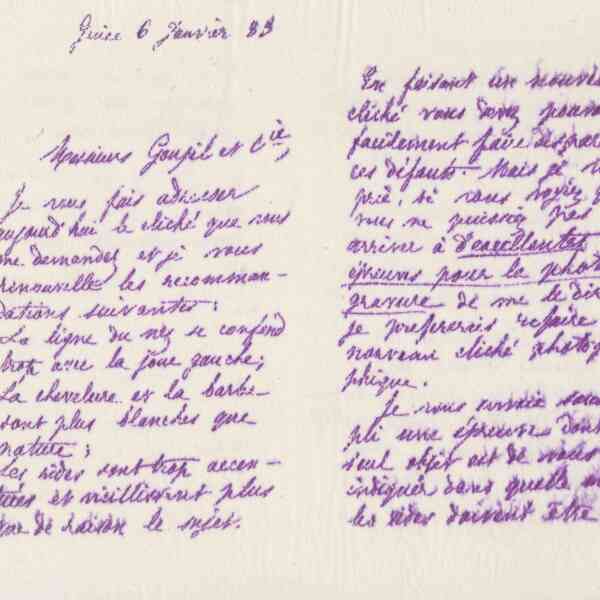 Guise 6 Janvier 83
Messieurs Goupil et Cie,
Je vous fais adresser
aujourd'hui le cliché que vous
me demandez et je vous
renouvelle les recomman-
dations suivantes :
La ligne du nez se confond
trop avec la joue gauche ;
La chevelure et la barbe
sont plus blanches que
nature ;
Les rides sont trop accen-
tuées et vieillissent plus
que de raison le sujet.
En faisant un nouve
cliché vous devez pouvo
facilement faire dispara
ces défauts. Mais je v
prie, si vous voyez q
vous ne puissiez pas
arriver à d'excellentes
épreuves pour la photo
gravure de me le dir
je préférerais refaire
nouveau cliché photog
phique.
Je vous envoie sous
pli une épreuve dont
seul objet est de vous
indiquer dans quelle m
les rides doivent être